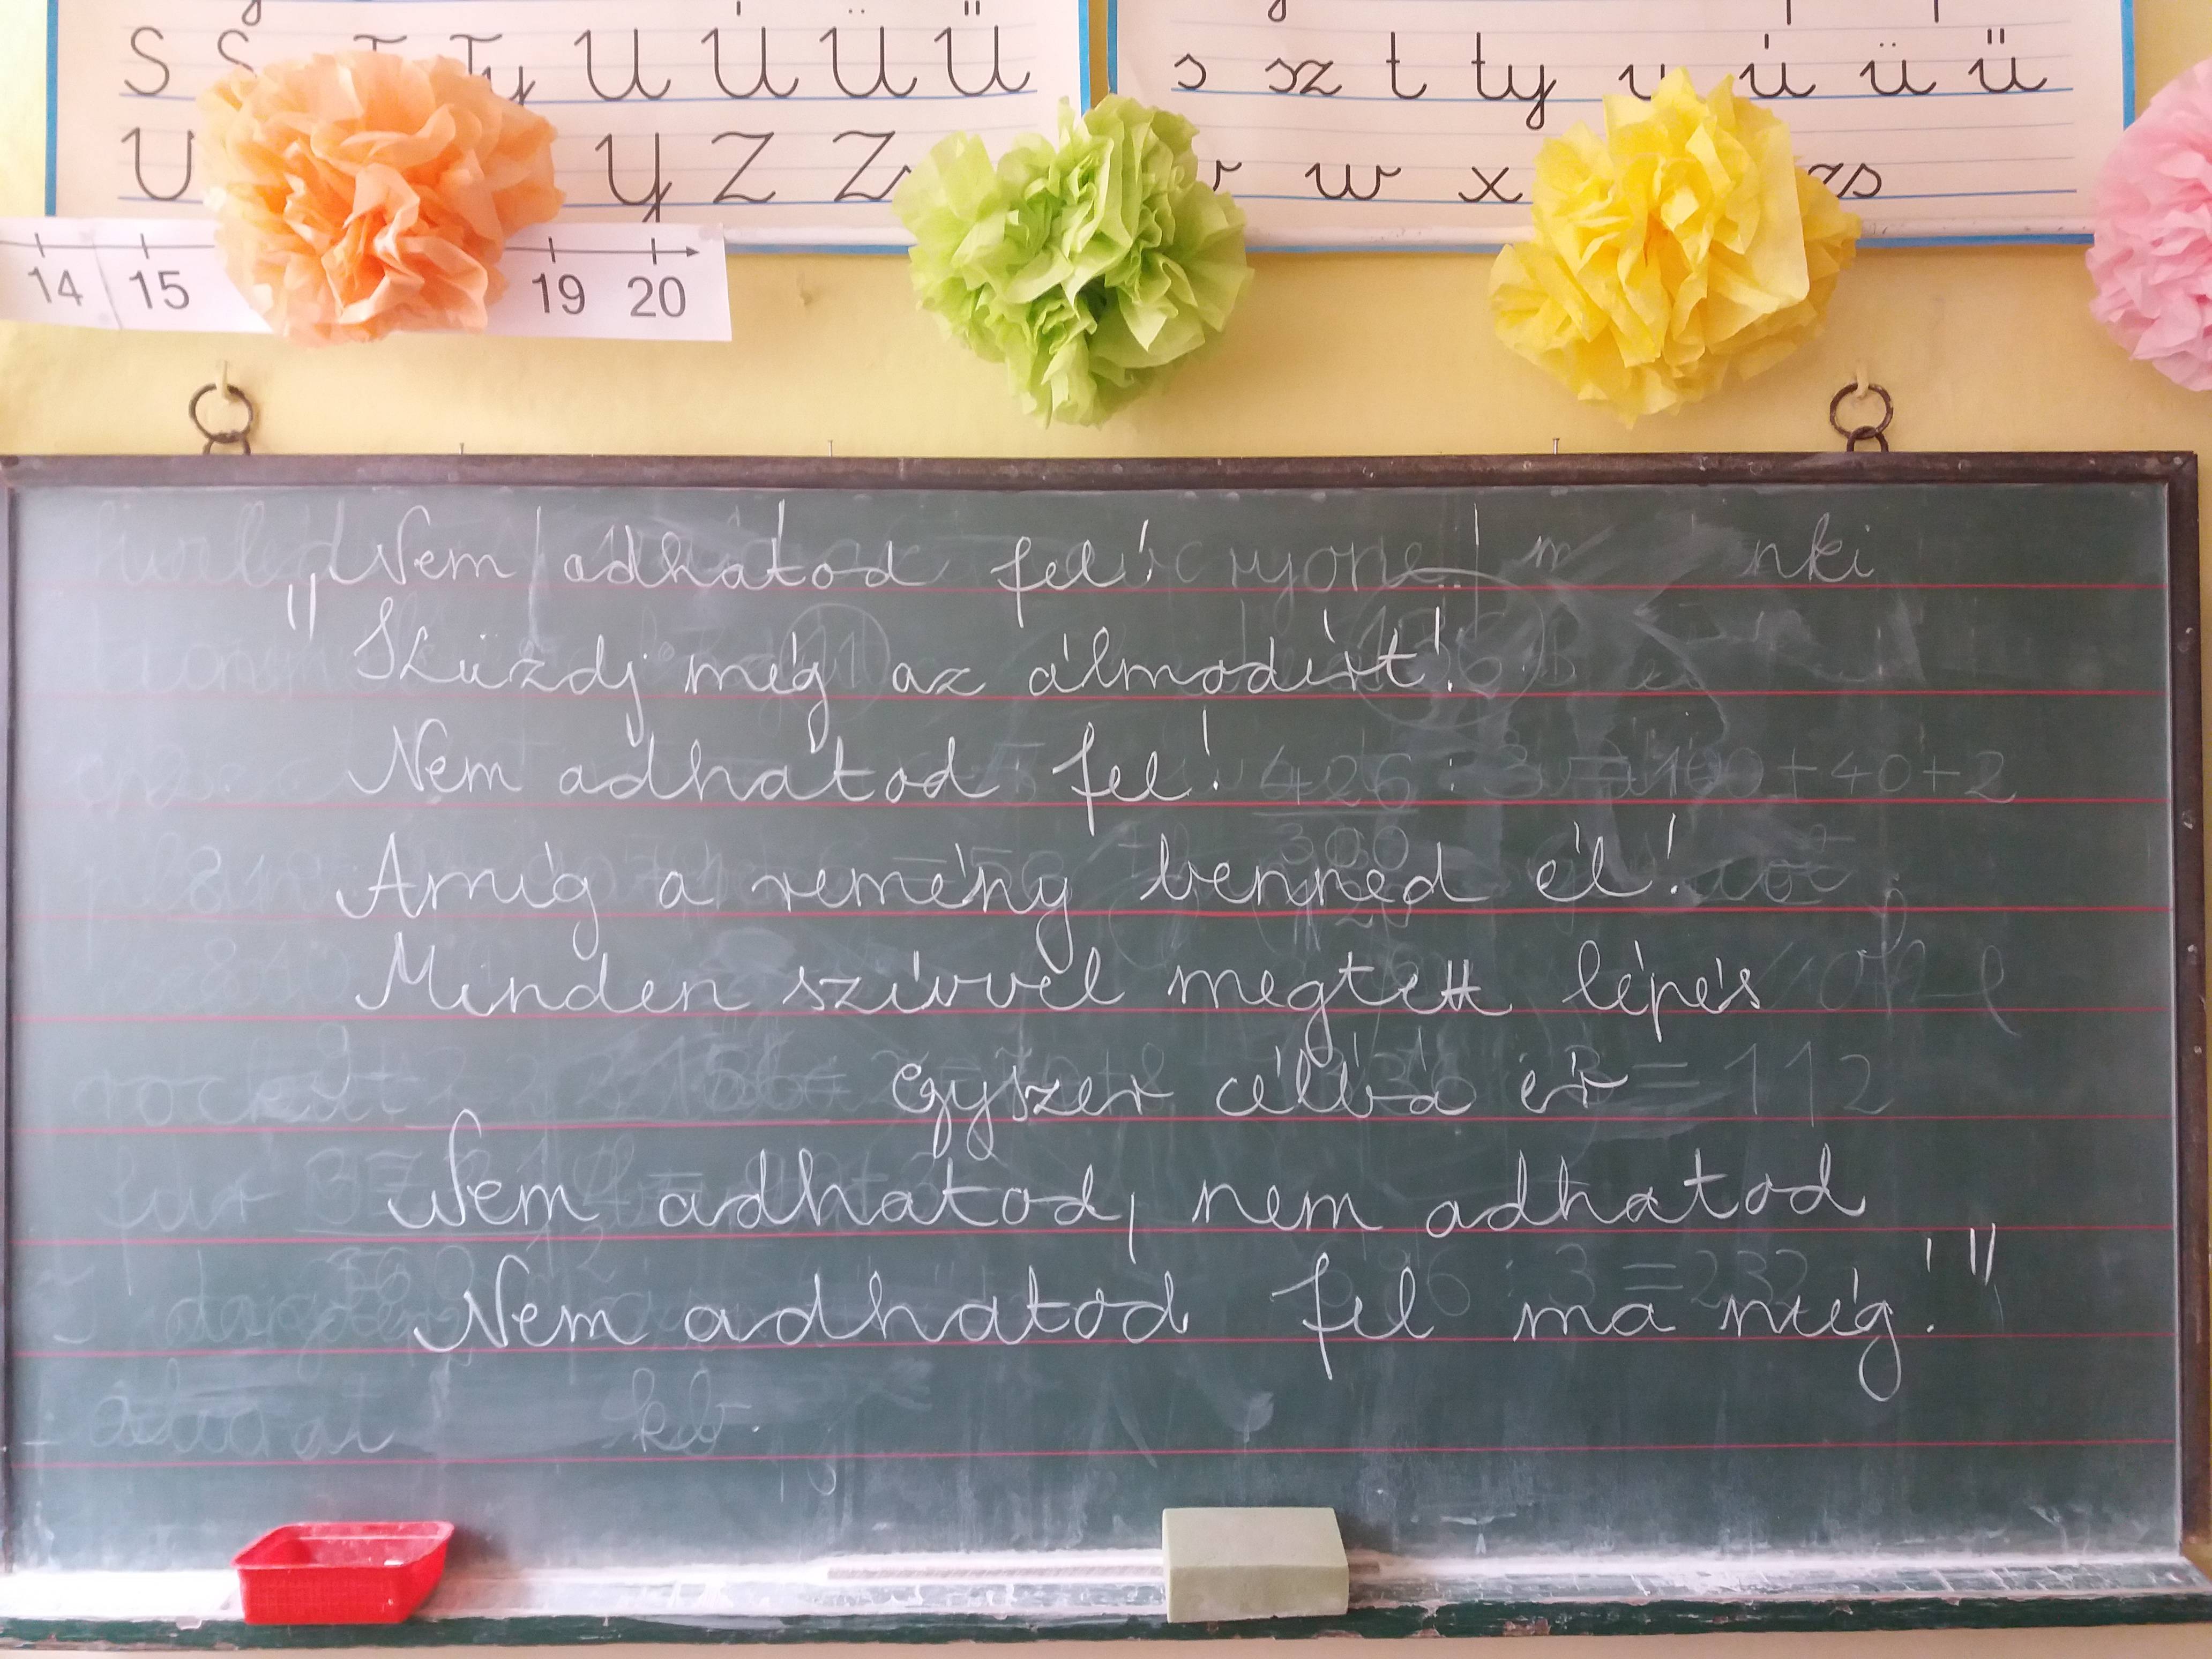 S T Ty U Ú Ü Ű
s sz t ty u ú ü ű
U Y Z Zs
w x zs
14 15 19 20
„Nem adhatod fel!
Küzdj még az álmodért!
Nem adhatod fel!
Amíg a remény benned él!
Minden szívvel megtett lépés
egyszer célba ér
Nem adhatod, nem adhatod
Nem adhatod fel ma még!"
nki
426 : 3 = 100+40+2
300
= 112
: 3 = 232